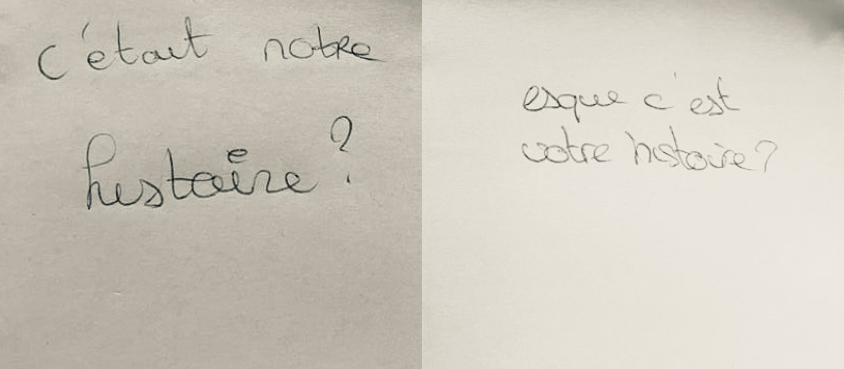 c'était notre
histoire ?
esque c'est
votre histoire ?